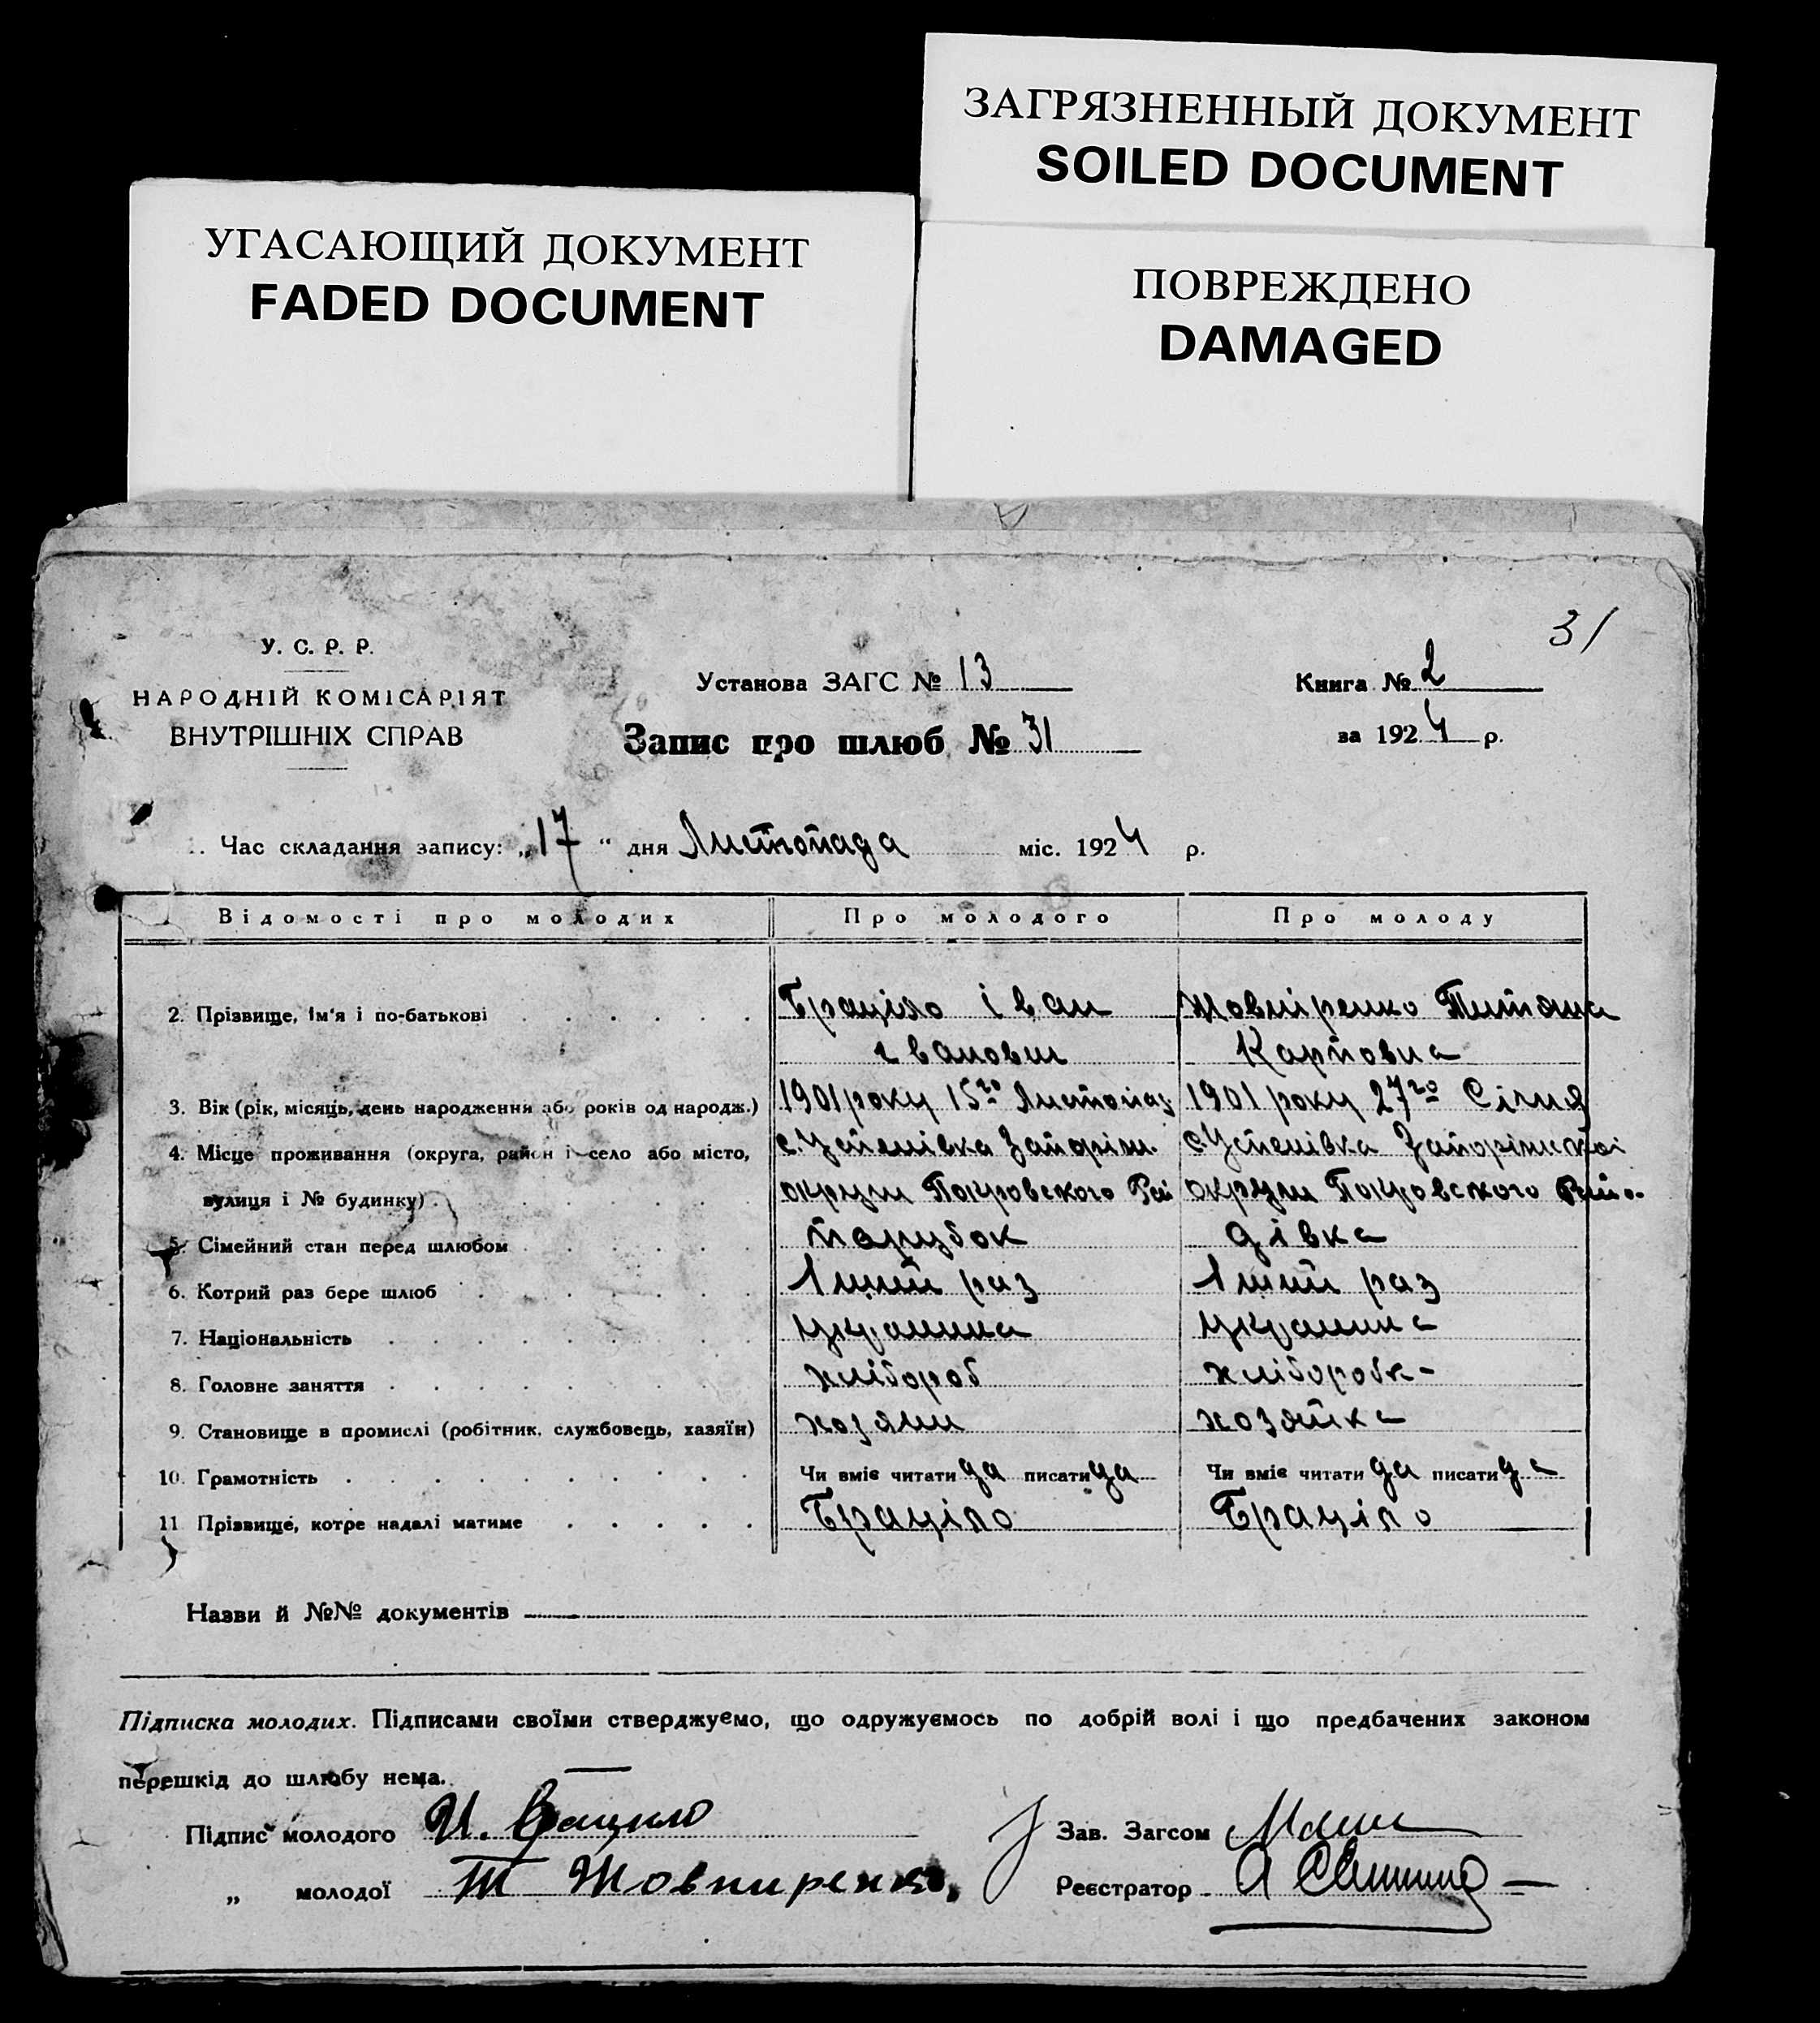 ЗАГРЯЗНЕННЫЙ ДОКУМЕНТ
SOILED DOCUMENT
УГАСАЮЩИЙ ДОКУМЕНТ
FADED DOCUMENT
ПОВРЕЖДЕНО
DAMAGED
31
У. С. Р. Р.
НАРОДНІЙ КОМІСАРІЯТ
ВНУТРІШНІХ СПРАВ
Установа ЗАГС № 13
Книга № 2
Запис про шлюб № 31
за 1924 р.
1. Час складання запису: „17“ дня Листопада міс. 1924 р.
Відомості про молодих Про молодого Про молоду
2. Прізвище, ім'я і по-батькові Браціло Іван Жовніренко Титяна
Іванович Карповна
3. Вік (рік, місяць, день народження або років од народж.) 1901 року 15го Листопад 1901 року 27го Січня
4. Місце проживання (округа, район і село або місто, с. Успенівка Запоріж. с Успенівка Запоріжської
вулиця і № будинку) округи Покровского Рай округи Покровского Райо.
5. Сімейний стан перед шлюбом парубок дівка
6. Котрий раз бере шлюб 1ший раз 1ший раз
7. Національність украинка украинка
8. Головне заняття хлібороб хліборобка
9. Становище в промислі (робітник, службовець, хазяїн) хозяин хозяйка
10. Грамотність Чи вміє читати да писати да Чи вміє читати да писати да
11. Прізвище, котре надалі матиме Браціло Браціло
Назви й №№ документів
Підписка молодих. Підписами своїми стверджуємо, що одружуємось по добрій волі і що предбачених законом
перешкід до шлюбу нема.
Підпис молодого И. Брацило Зав. Загсом
„ молодої Т Жовниренко Реєстратор